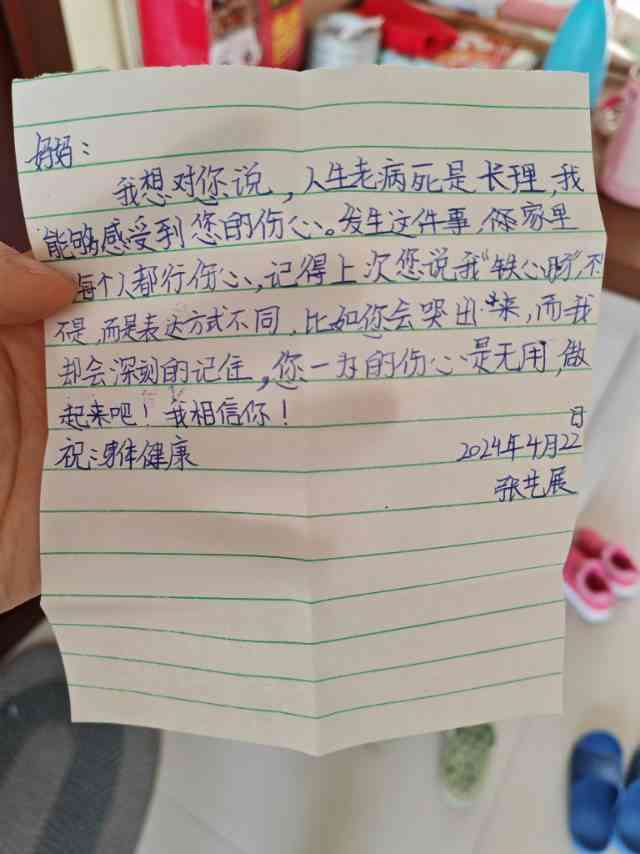 妈妈：
我想对您说，人生老病死是长理，我
能够感受到您的伤心。发生这件事，你家里
每个人都行伤心，记得上次您说我"铁心肠"不
不是，而是表达方式不同，比如你会哭出来，而我
却会深刻的记住，您一为的伤心是无用，做
起来吧！我相信你！
祝：身体健康
2024年4月22日
张艺展